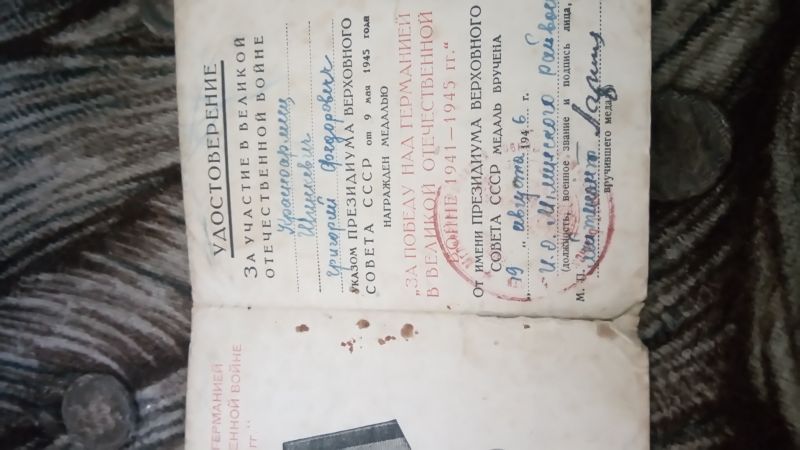 УДОСТОВЕРЕНИЕ
ЗА УЧАСТИЕ В ВЕЛИКОЙ
ОТЕЧЕСТВЕННОЙ ВОЙНЕ
Красноармеец
Григорий Федорович
УКАЗОМ ПРЕЗИДИУМА ВЕРХОВНОГО
СОВЕТА СССР от 9 мая 1945 года
НАГРАЖДЕН МЕДАЛЬЮ
„ЗА ПОБЕДУ НАД ГЕРМАНИЕЙ
В ВЕЛИКОЙ ОТЕЧЕСТВЕННОЙ
ВОЙНЕ 1941—1945 гг.“
ОТ ИМЕНИ ПРЕЗИДИУМА ВЕРХОВНОГО
СОВЕТА СССР МЕДАЛЬ ВРУЧЕНА
19 " августа 1946 г.
И.О.
(должность, военное звание и подпись лица,
М. П.
вручившего медаль
ГЕРМАНИЕЙ
ЕННОЙ ВОЙНЕ
гг“